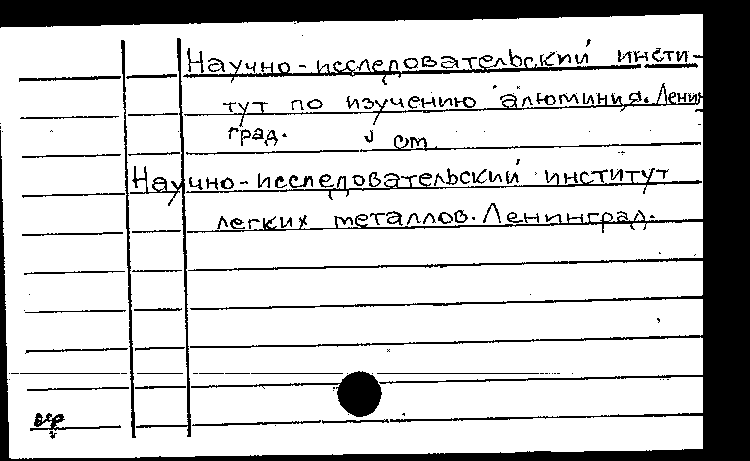 Научно-исследовательский инсти-
тут по изучению алюминия. Ленин
град. см.
Научно-исследовательский институт
легких металлов. Ленинград.